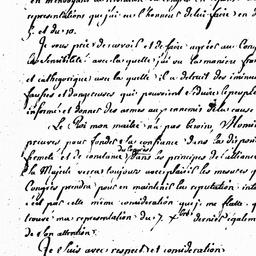 représentations que j'ai eu l'honneur de lui faire en d
5. et du 10.
Je vous prie de recevoir et de faire agréer au Cong
la sensibilité avec laquelle j'ai vu la maniére fran
et cathegorique avec laquelle il a detruit des insinua
fausses et dangereuses qui pouvoient séduire le peuple
informé et donner des armes aux ennemis de la cause
Le Roi mon maitre n'a pas besoin Messi
preuves pour fonder sa confiance dans la disposi
fermeté et de constance du Congrès dans les principes de l'allianc
Sa Majesté verra toujours avec plaisir les mesures q
Congrès prendra pour en maintenir la reputation inta
c'est par cette même consideration que je me flatte q
trouvé ma représentation du 7. xbre dernier égalem
de son attention.
Je suis avec respect et consideration